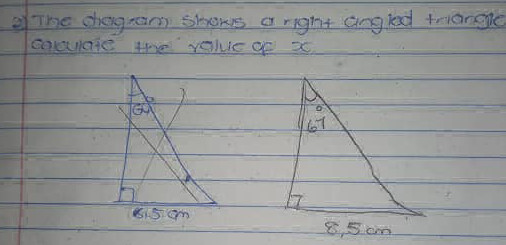 2) The diagram shows a right angled triangle
calculate the value of x
67°
8,5 cm